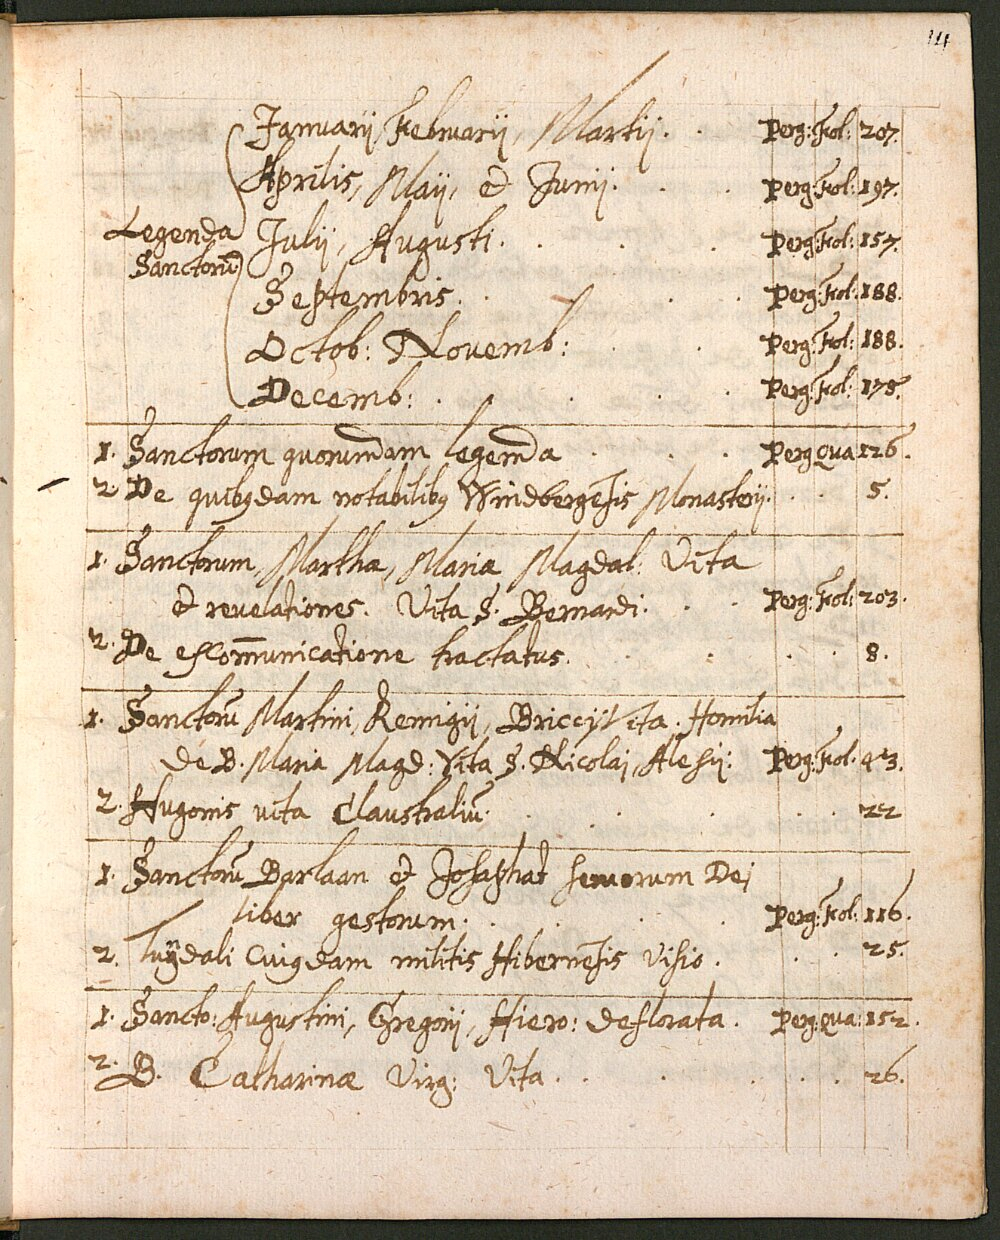 Januarij, Februarij, Martij. . Perg: Fol: 207.
Aprilis, Maij, et Junij. . Perg: Fol: 197.
Legenda Sanctorū
Julij, Augusti. . . . Perg: Fol: 157.
Septembris. . . . Perg: Fol: 188.
Octob: Novemb: . . Perg: Fol: 188.
Decemb: . . . . . Perg: Fol: 175.
1. Sanctorum quorundam legenda . . . Perg Qua 126.
2. De quibꝯdam notabilibꝯ Windbergēsis Monasterij. . 5.
1. Sanctorum, Martha, Maria Magdal: Vita
et revelationes. Vita S. Bernardi. . . Perg: Fol: 203.
2. De escōmunicatione tractatus. . . . . 8.
1. Sanctorū Martini, Remigij, Briccij Vita. Homilia
De B. Maria Magd: Vita S. Nicolaj, Alesij. Perg: Fol. 93.
2. Hugonis vita Claustraliū. . . . 22
1. Sanctorū Barlaan et Josaphat servorum Dej
liber gestorum. . . . Perg: Fol: 116.
2. Tuṅdali cuiꝯdam militis Hibernēsis visio . . . 25.
1. Sancto: Augustini, Gregorij, Hiero: deflorata . Perg: Qua: 152.
2. B. Catharinæ Virg: Vita . . . . . 26.